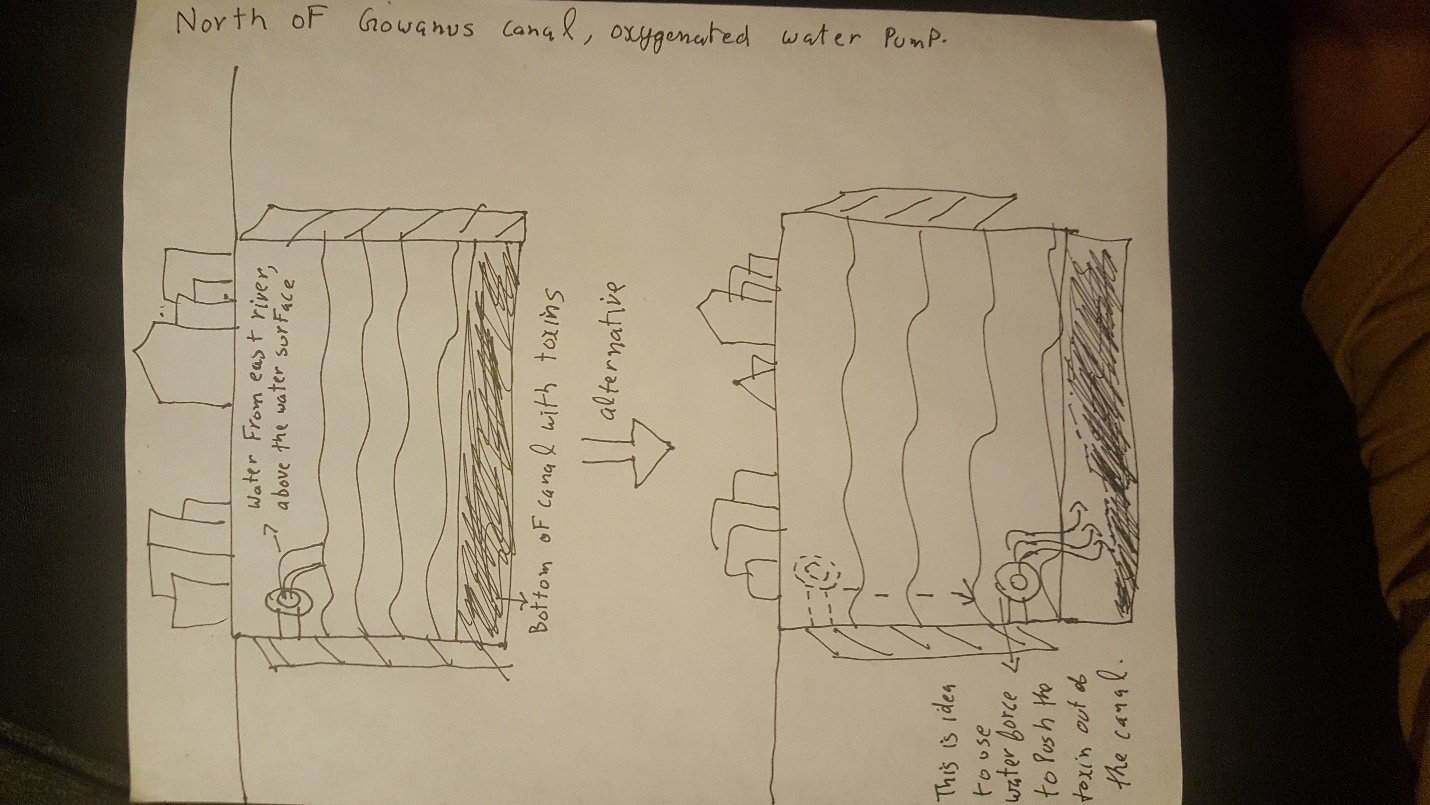 North of Gowanus canal, oxygenated water pump.
Water From east river,
above the water surface
Bottom of canal with toxins
alternative
This is idea
to use
water force
to push the
toxin out of
the canal.